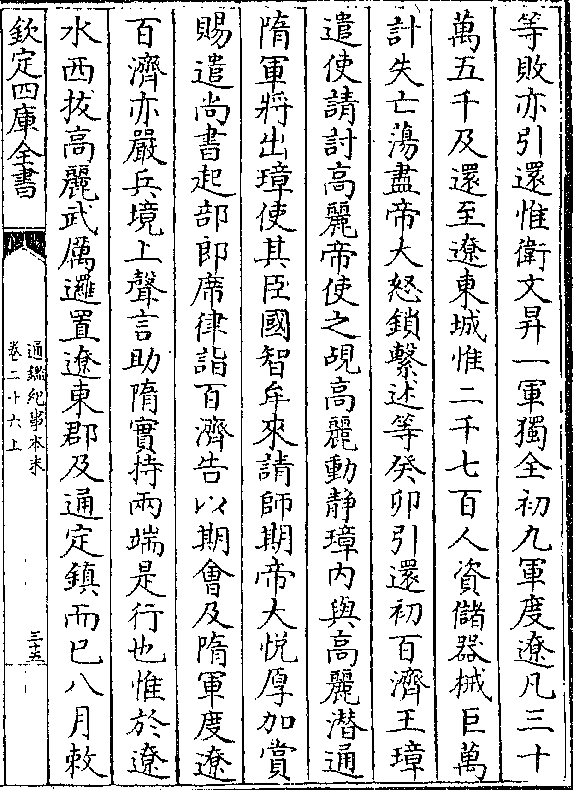 等敗亦引還惟衛文昇一軍獨全初九軍度遼凡三十
萬五千及還至遼東城惟二千七百人資儲器械巨萬
計失亡蕩盡帝大怒鎖繫述等癸卯引還初百濟王璋
遣使請討高麗帝使之覘高麗動静璋内與高麗潜通
隋軍將出璋使其臣國智牟來請師期帝大悦厚加賞
賜遣尚書起部郎席律詣百濟告以期會及隋軍度遼
百濟亦嚴兵境上聲言助隋實持兩端是行也惟於遼
水西拔高麗武厲邏置遼東郡及通定鎮而已八月敕
欽定四庫全書
通鑑紀事本末
卷二十六上
三十五